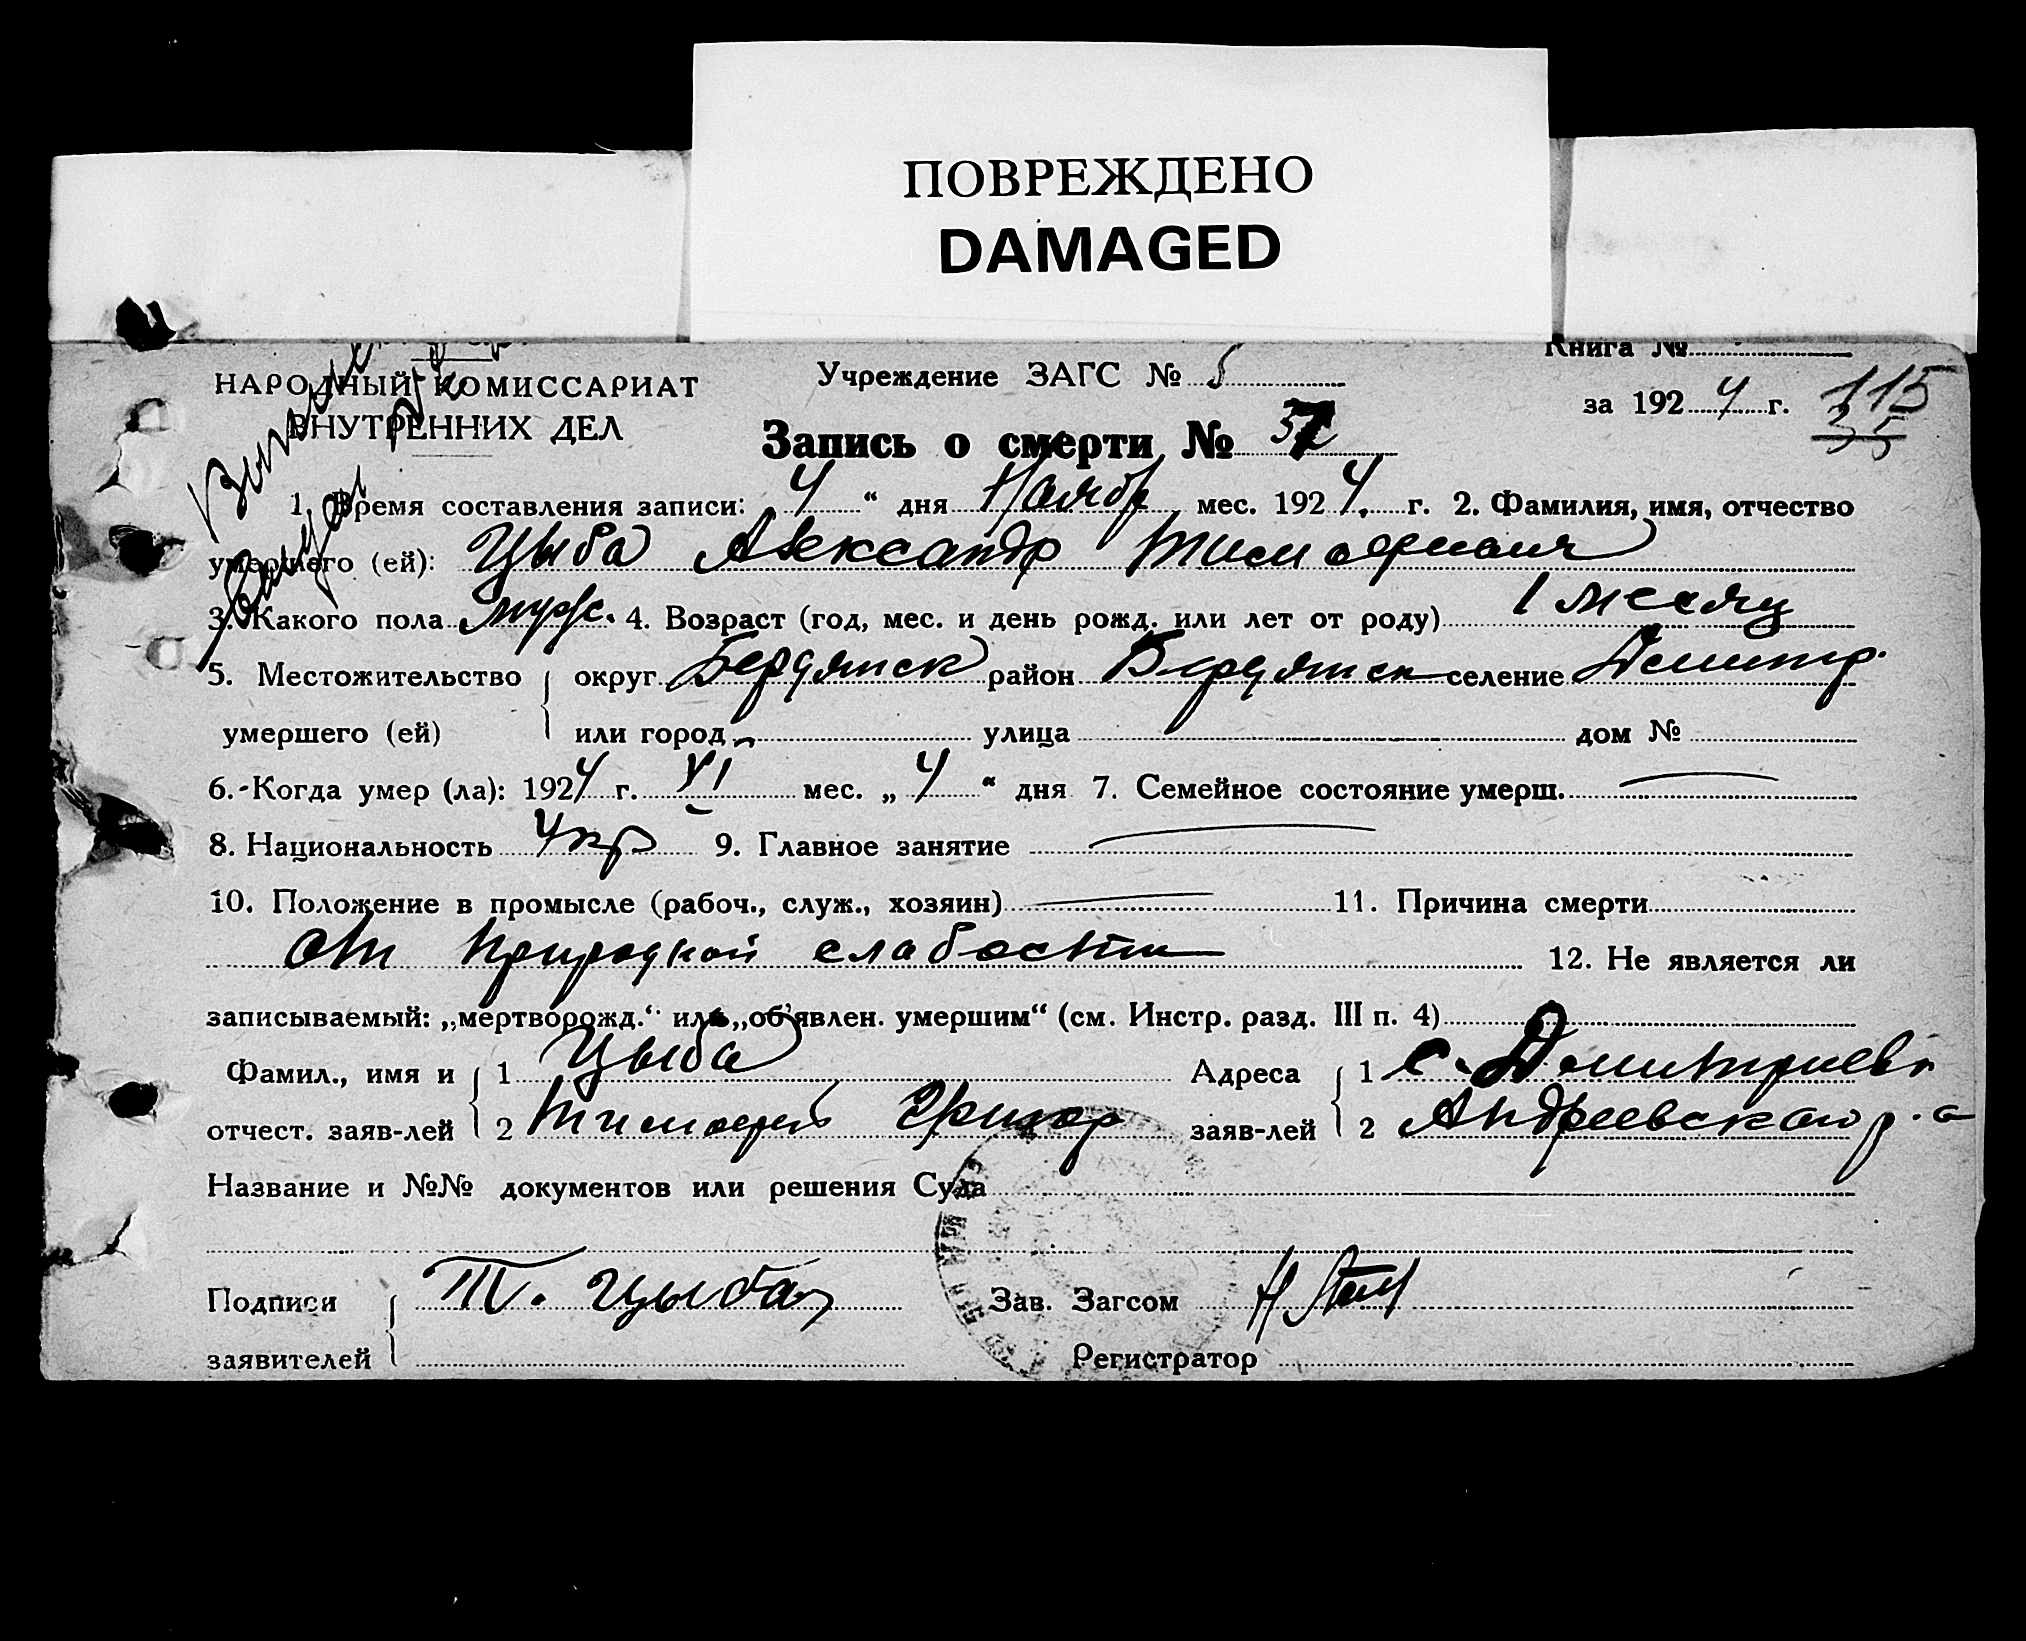 ПОВРЕЖДЕНО
DAMAGED
Книга №
НАРОДНЫЙ КОМИССАРИАТ
ВНУТРЕННИХ ДЕЛ
Учреждение ЗАГС № 5
за 1924 г. 115
35
Запись о смерти №
1. Время составления записи: 4 “ дня Ноябр мес. 1924. г. 2. Фамилия, имя, отчество
умершего (ей): Цыба Александр Тимофеевич
3. Какого пола муж. 4. Возраст (год, мес. и день рожд. или лет от роду) 1 месяц
5. Местожительство округ Бердянск район Бердянск селение Дмитр.
умершего (ей) или город улица дом №
6. Когда умер (ла): 1924 г. XI мес. „ 4 “ дня 7. Семейное состояние умерш.
8. Национальность Укр 9. Главное занятие
10. Положение в промысле (рабоч., служ., хозяин) 11. Причина смерти
от природной слабости 12. Не является ли
записываемый: „мертворожд.“ или „об’явлен. умершим“ (см. Инстр. разд. III п. 4)
Фамил., имя и 1 Цыба Адреса 1 с. Дмитриевк
отчест. заяв-лей 2 Тимофей Григор заяв-лей 2 Андреевского р.
Название и №№ документов или решения Суда
Подписи Т. Цыба Зав. Загсом
заявителей Регистратор